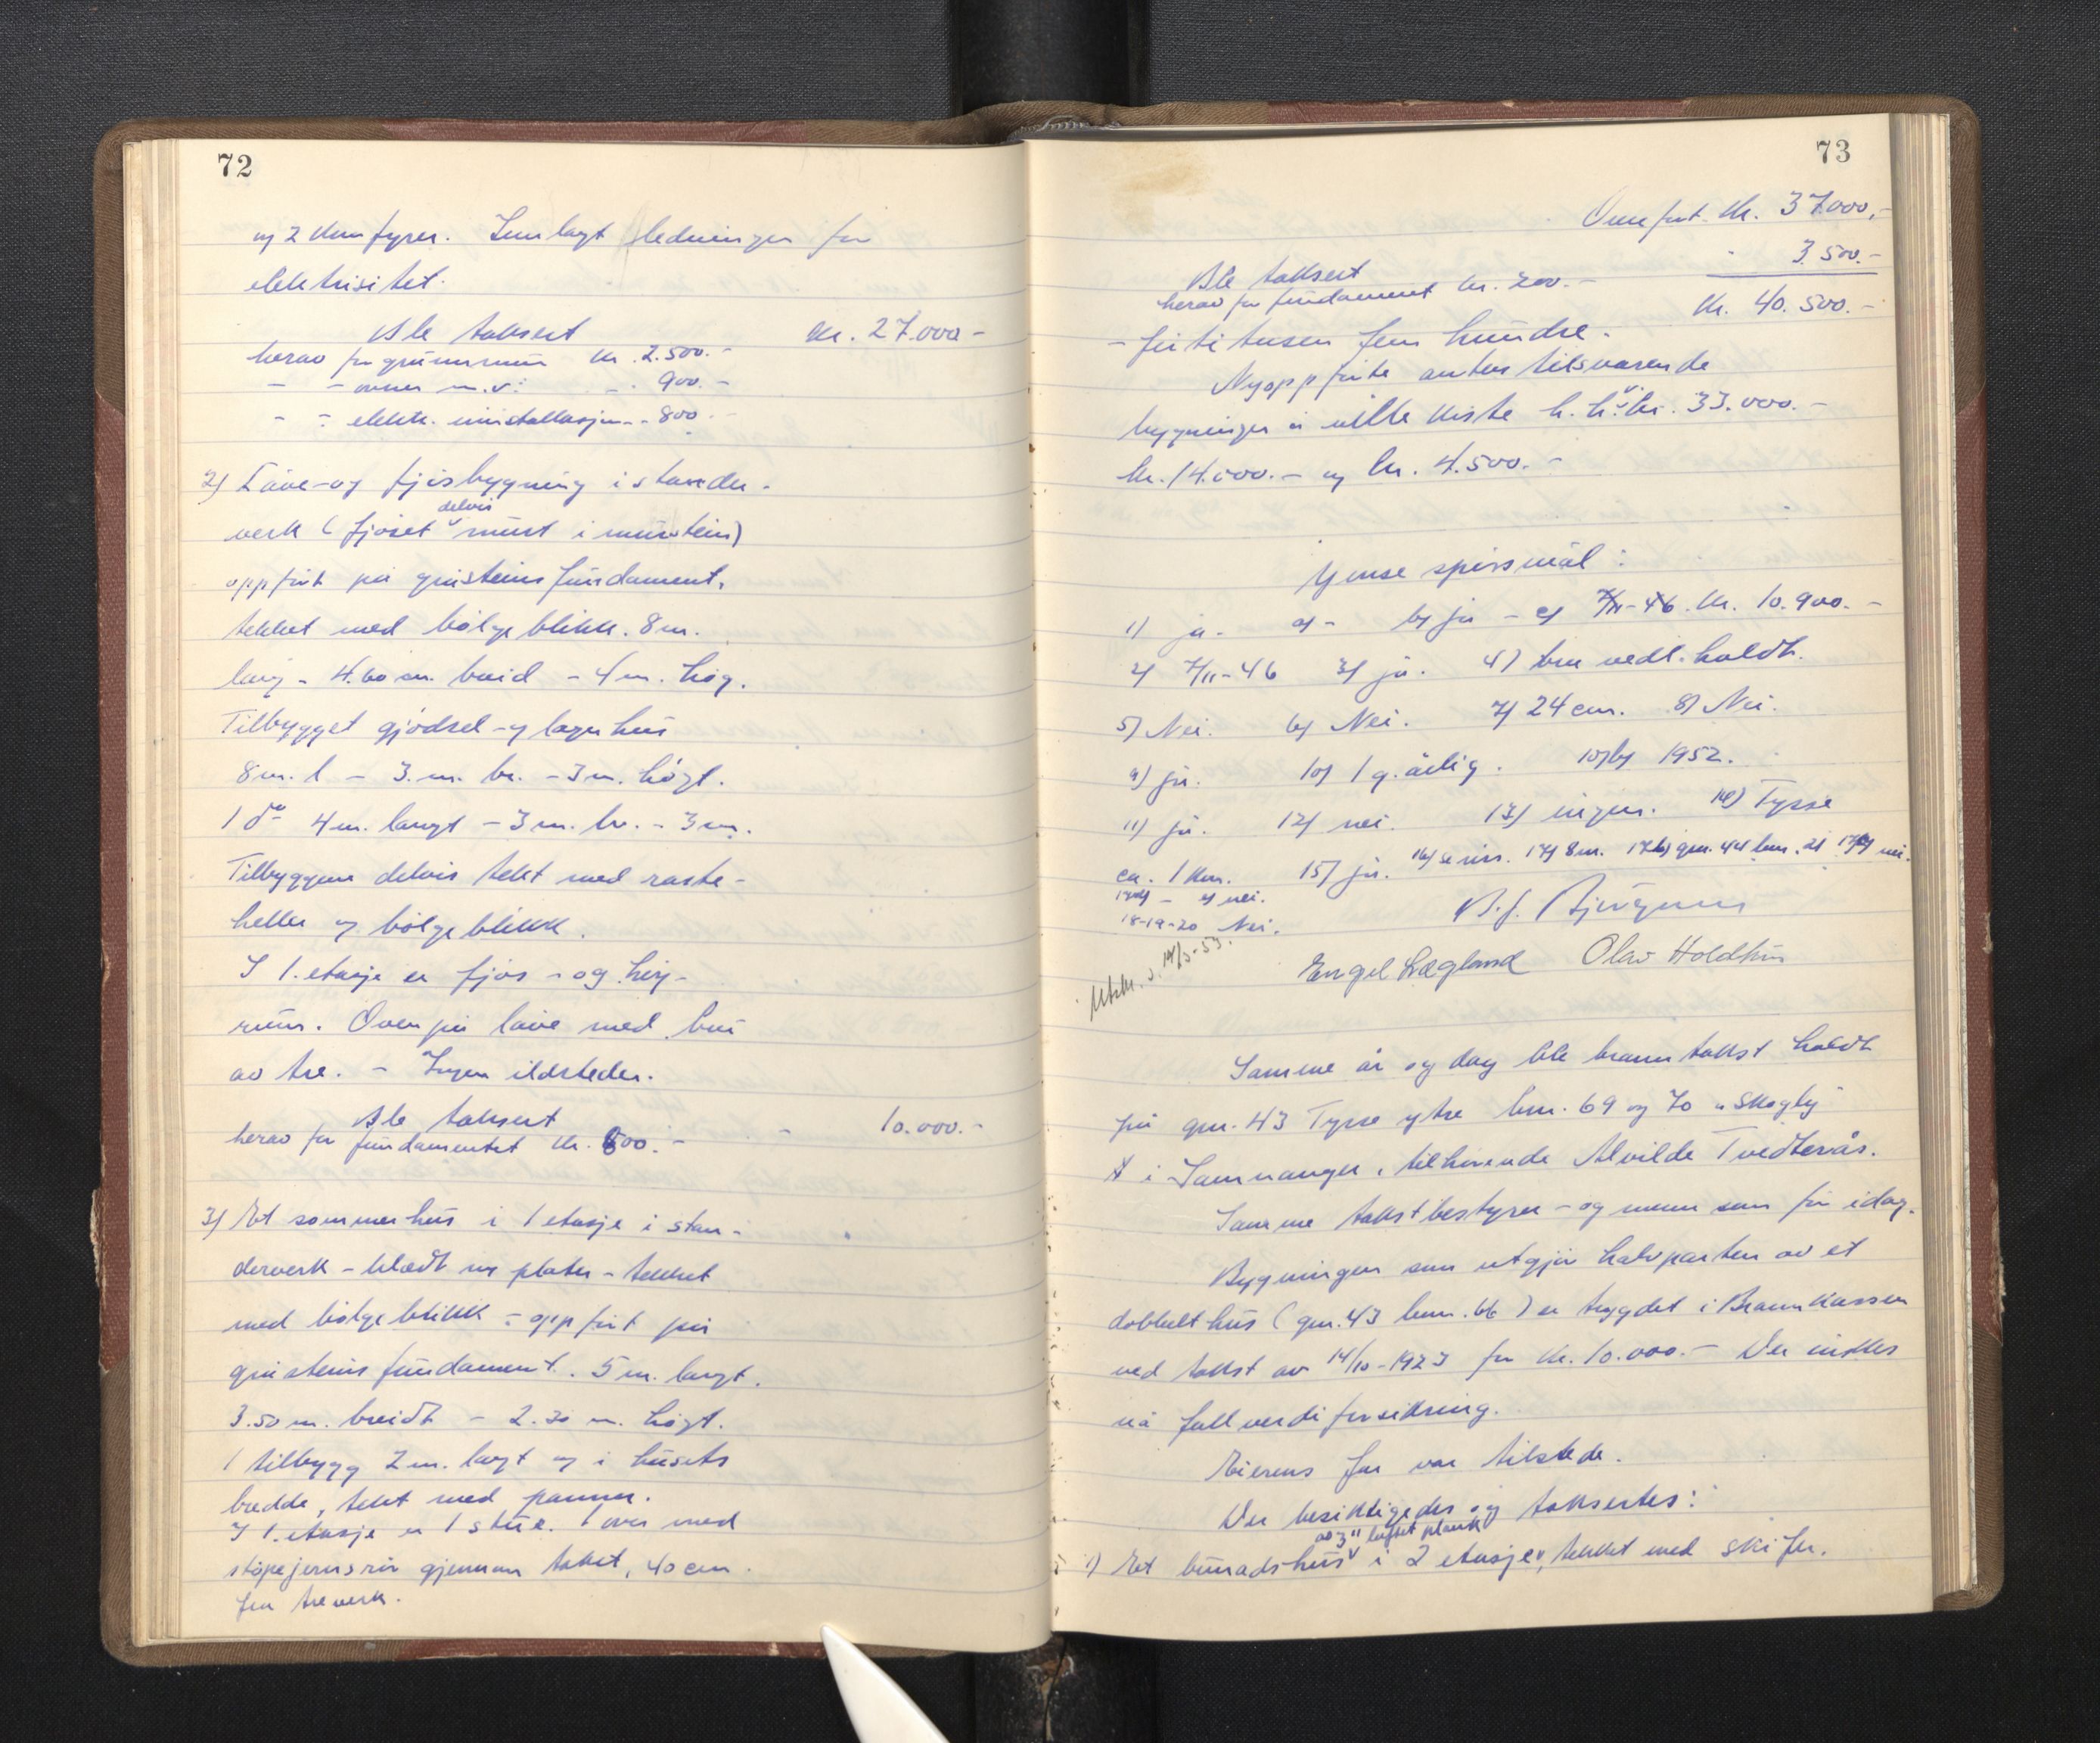 72
og 2 komfyrer. Innlagt ledninger for
elektrisitet.
Ble taksert kr. 27.000 -
herav for grunnmur kr. 2.500.-
- - ovner m.v. - 900.-
- - elektr. innstallasjon - 800.-
2) Løve- og fjøsbygning i stender-
verk (fjøset delvis murt i murstein)
oppført på gråsteinsfundament,
tekket med bølgeblikk. 8 m.
lang - 4.60 m. breid - 4 m. høg.
Tilbygget gjødsel- og lagerhus
8 m. l - 3. m. br. - 3 m. høgt.
1 do 4 m. langt - 3 m. br. - 3 m.
Tilbyggene delvis tekt med raste-
heller og bølgeblikk.
I 1. etasje er fjøs- og høy-
rum. Ovenpå løve med bru
av tre. - Ingen ildsteder.
Ble taksert - 10.000.-
herav for fundamentet kr. 800.-
3) Et sommerhus i 1 etasje i sten-
derverk - kledt m plater - tekket
med bølgeblikk - oppført på
gråsteins fundament. 5 m. langt.
3.50 m. breidt - 2.30 m. høgt.
1 tilbygg 2 m. langt og i husets
bredde, tekt med panner.
I 1. etasje er 1 stue. 1 ovn med
støpejernsrør gjennom taket, 40 cm.
fra treverk.
73
Overført kr. 37.000,-
Ble taksert - 3.500.-
herav for fundament kr. 200.-
kr. 40.500.-
- førti tusen fem hundre.
Nyoppførte antas tilsvarende
bygninger å ville koste h.h.v. kr. 33.000.-
kr. 14.000.- og kr. 4.500.-
Ymse spørsmål:
1) ja. a) - b) ja - c) 7/11-46. kr. 10.900.-
2) 7/11-46 3) ja. 4) bra vedl. holdt.
5) Nei. 6) Nei. 7) 24 cm. 8) Nei.
9) ja. 10) 1 g. årlig. 10) b) 1952.
11) ja. 12) nei. 13) ingen. 14) Tysse
ca. 1 km. 15) ja. 16) se riss. 17) 8 m. 17 b) gnr. 44 bnr. 21 17 c) nei.
17 d) - e) nei.
18-19-20 Nei.
Utskr. s. 14/3-53.
Engel Lægland Olav Holdhus
Samme år og dag ble branntakst holdt
på gnr. 43 Tysse ytre bnr. 69 og 70 "Skogly"
i Samnanger, tilhørende Alvilde Tvedterås.
Samme takstbestyrer - og menn som før idag.
Bygningen som utgjør halvparten av et
dobbelthus (gnr. 43 bnr. 66) er trygdet i Brannkassen
ved takst av 14/10-1923 for kr. 10.000.- Der ønskes
nå fullverdiforsikring.
Eierens far var tilstede.
Der besiktigedes og taksertes:
1) Et bunadshus av 3" laftet plank i 2 etasjer, tekket med skifer.